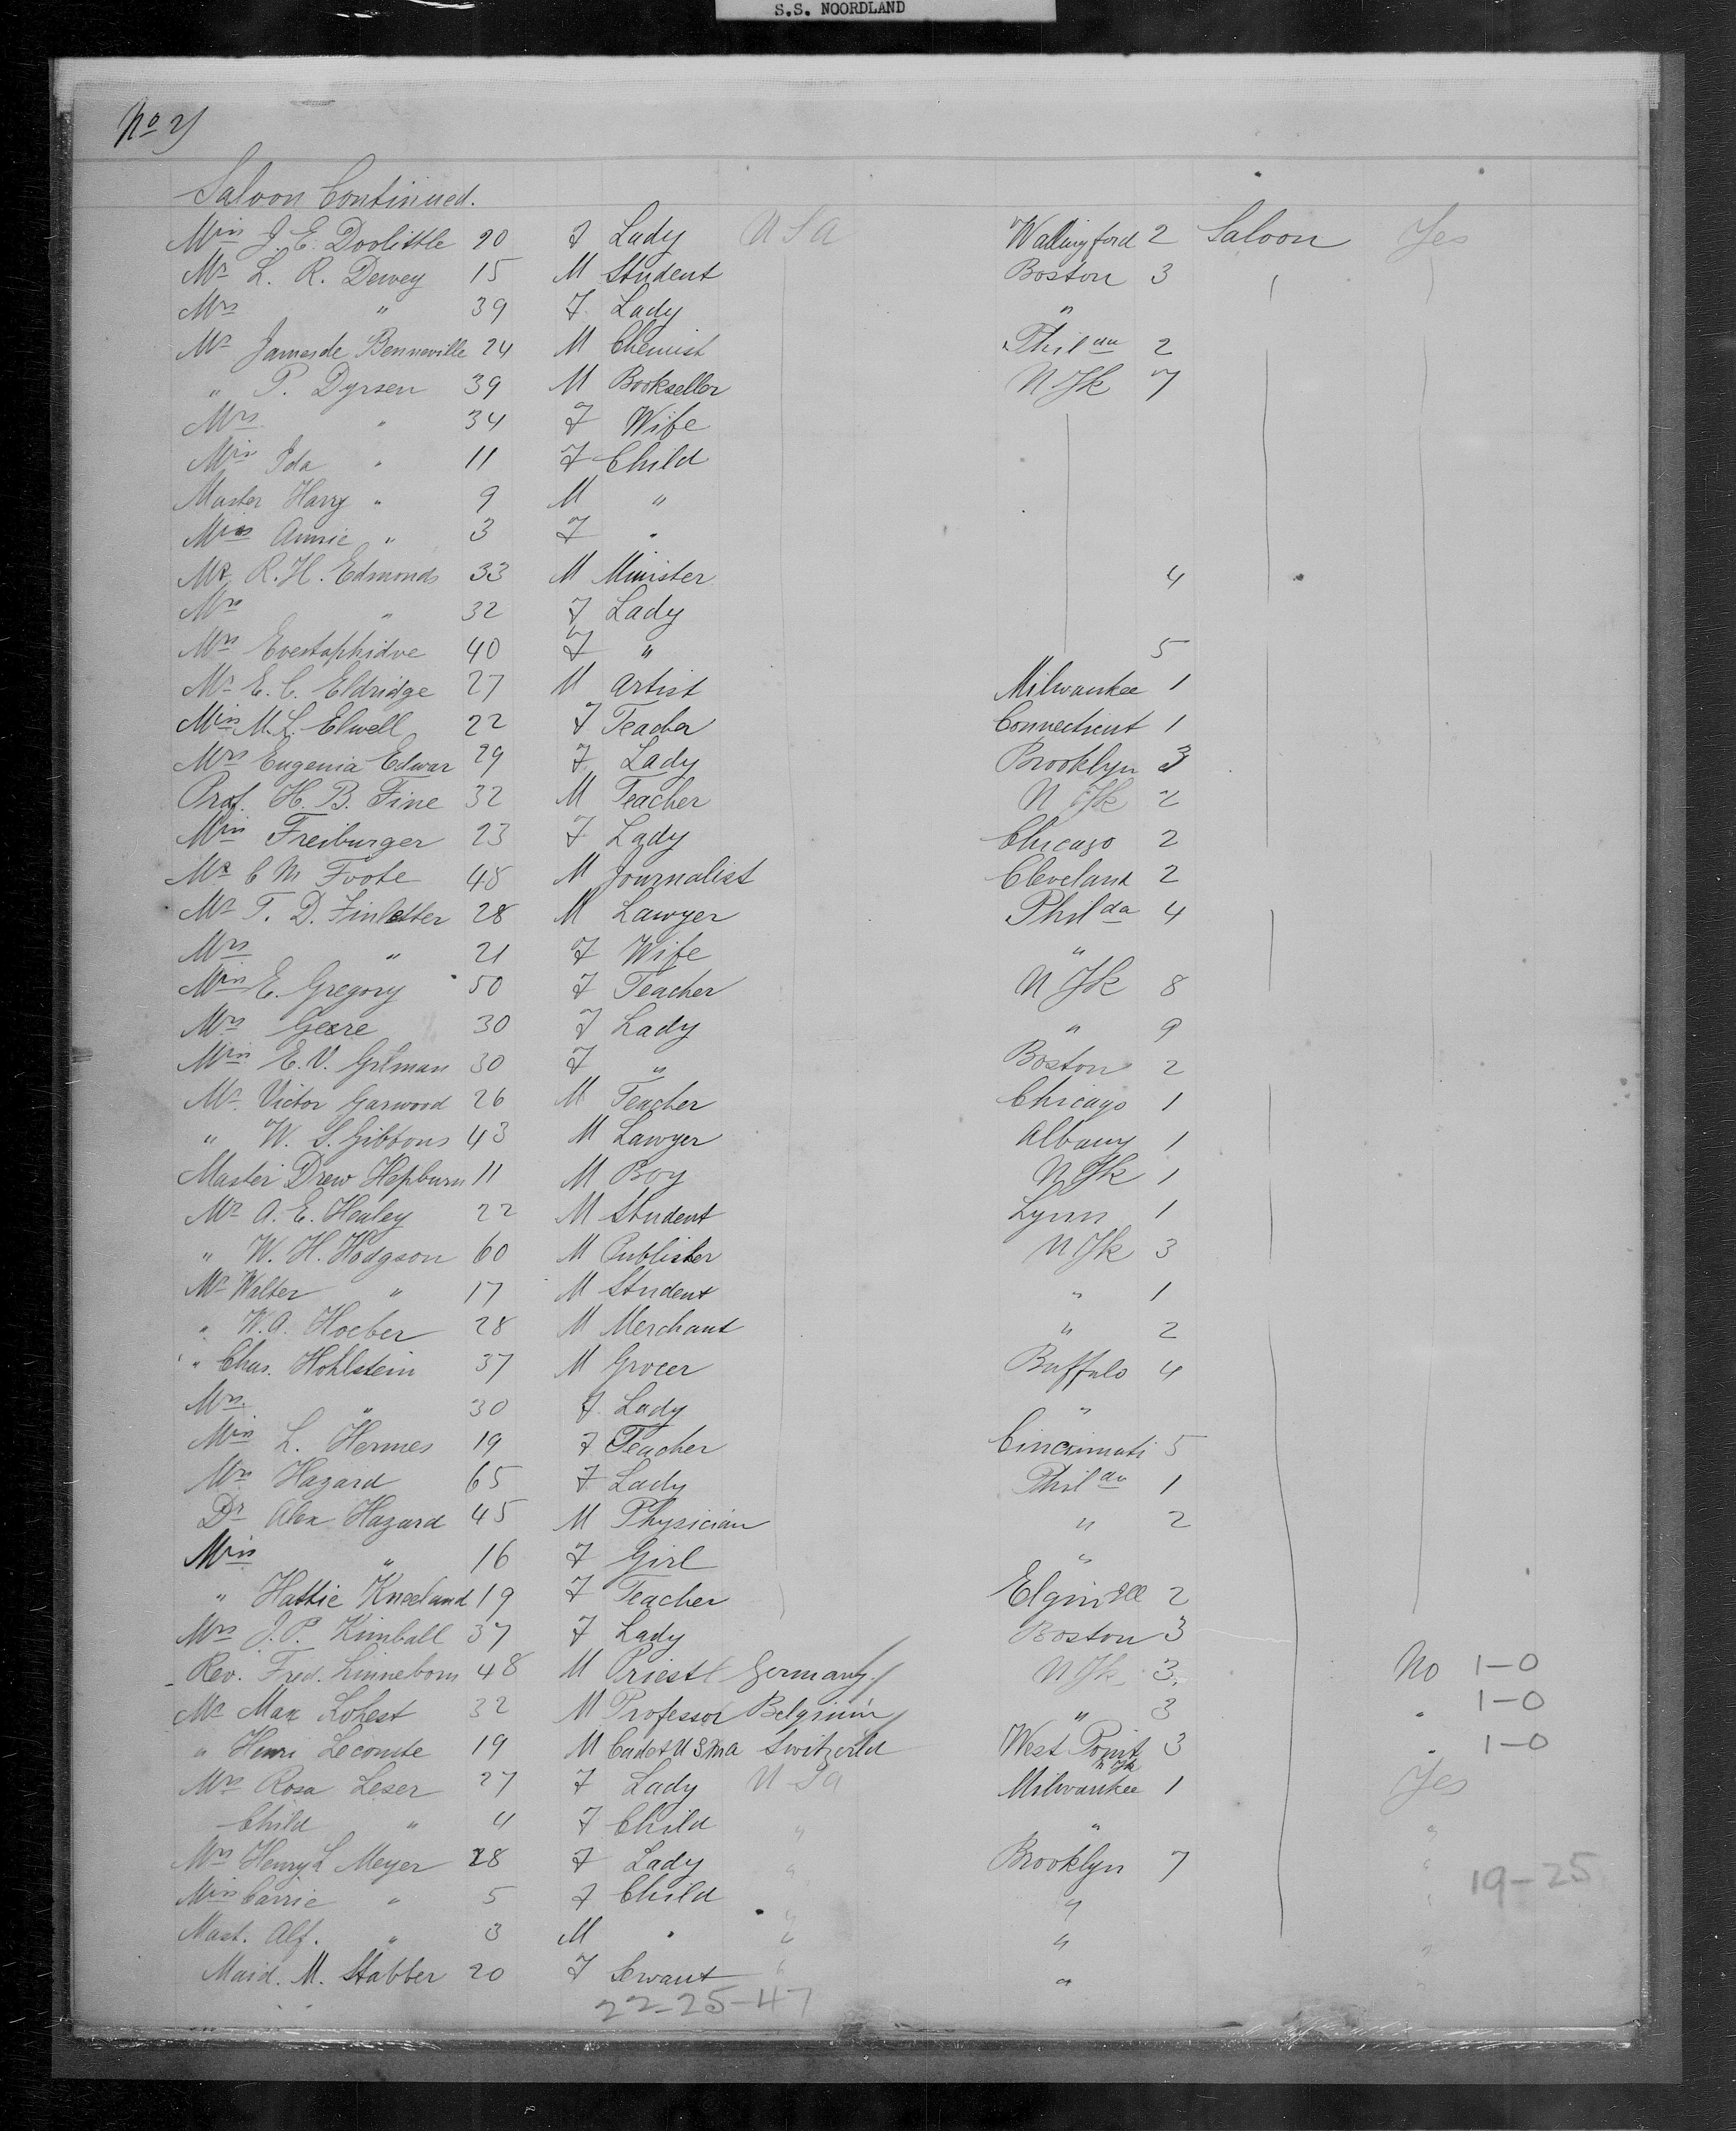 S.S. NOORDLAND
No 2)
Saloon Continued.
Miss J. E. Doolittle 20 F Lady U S A Wallingford 2 Saloon Yes
Mr L. R. Dewey 15 M Student Boston 3
Mrs " 39 F. Lady "
Mr James de Benneville 24 M Chemist Philda 2
" P. Dyrsen 39 M Bookseller N Yk 7
Mrs " 34 F Wife
Miss Ida " 11 F Child
Master Harry " 9 M "
Miss Annie " 3 F "
Mr R. H. Edmonds 33 M Minister 4
Mrs " 32 F Lady
Mrs Evestaphidve 40 F " 5
Mr E. C. Eldridge 27 M Artist Milwaukee 1
Miss M. L. Elwell 22 F Teacher Connecticut 1
Mrs Eugenia Edwar 29 F Lady Brooklyn 3
Prof. H. B. Fine 32 M Teacher N Yk 2
Miss Freiburger 23 F Lady Chicago 2
Mr C M Foote 48 M Journalist Cleveland 2
Mr T. D. Finletter 28 M Lawyer Philda 4
Mrs " 21 F Wife "
Miss E. Gregory 50 F Teacher N Yk 8
Mrs Geere 30 F Lady " 9
Miss E. V. Gilman 30 F " Boston 2
Mr Victor Garwood 26 M Teacher Chicago 1
" W. S. Gibbons 43 M Lawyer Albany 1
Master Drew Hepburn 11 M Boy N Yk 1
Mr A. E. Healey 22 M Student Lynn 1
" W. H. Hodgson 60 M Publisher N Yk 3
Mr Walter " 17 M Student " 1
" W. A. Hoeber 28 M Merchant " 2
" Chas. Hohlstein 37 M Grocer Buffalo 4
Mrs. " 30 F. Lady "
Miss L. Hermes 19 F Teacher Cincinnati 5
Mrs Hazard 65 F Lady Philda 1
Dr Alex Hazard 45 M Physician " 2
Miss " 16 F Girl "
" Hattie Kneeland 19 F Teacher Elgin Ill 2
Mrs J. P. Kimball 37 F Lady Boston 3
Rev. Fred. Linneborn 48 M Priest Germany N Yk 3 No 1-0
Mr Max Lohest 32 M Professor Belgium " 3 " 1-0
" Henri Lecomte 19 M Cadet U S M A Switzerld West Point N Yk 3 " 1-0
Mrs Rosa Leser 27 F Lady U S A Milwaukee 1 Yes
Child " 4 F Child " " "
Mrs Henry L Meyer 28 F Lady " Brooklyn 7 "
19-25
Miss Carrie " 5 F Child " " "
Mast. Alf. " 3 M " " "
Maid. M. Stabber 20 F Servant " "
22-25-47